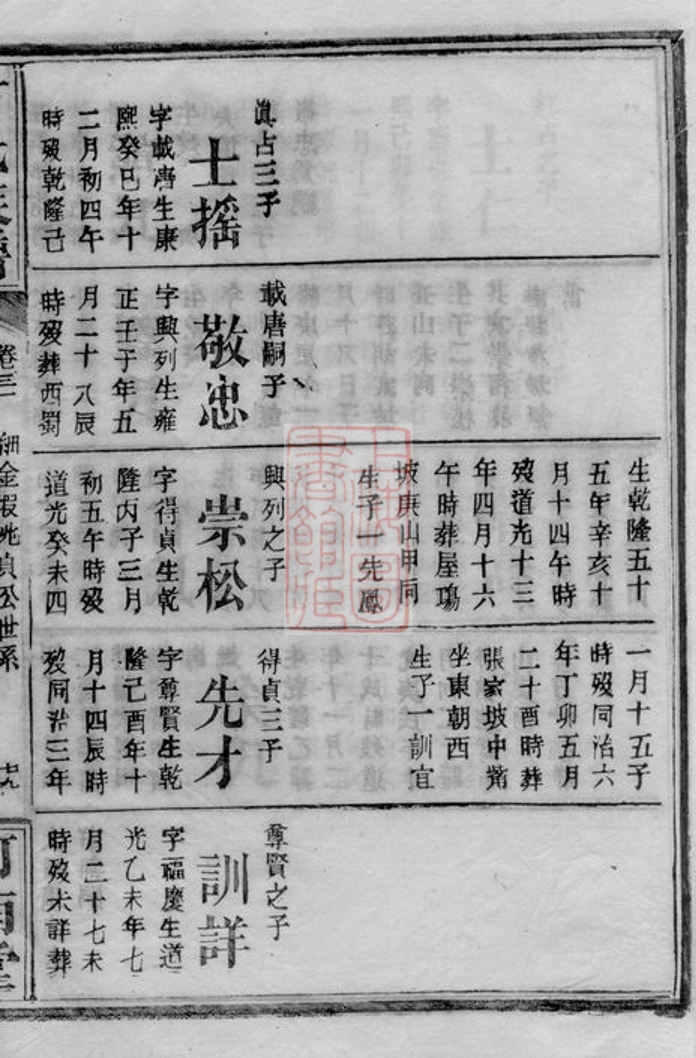 眞占三子
士摇
字載唐生康
熙癸巳年十
二月初四午
時殁乾隆己
載唐嗣子
敬忠
字興列生雍
正壬子年五
月二十八辰
時殁葬西蜀
生乾隆五十
五年辛亥十
月十四午時
殁道光十三
年四月十六
午時葬屋塲
坡庚山甲向
生子一先鳳
興列之子
崇松
字得貞生乾
隆丙子三月
初五午時殁
道光癸未四
一月十五子
時殁同治六
年丁卯五月
二十酉時葬
張家坡中嘴
坐東朝西
生子一訓宜
得貞三子
先才
字尊賢生乾
隆己酉年十
月十四辰時
殁同治三年
尊賢之子
訓詳
字福慶生道
光乙未年七
月二十七未
時殁未詳葬
卷三
世系
上海圖書館藏